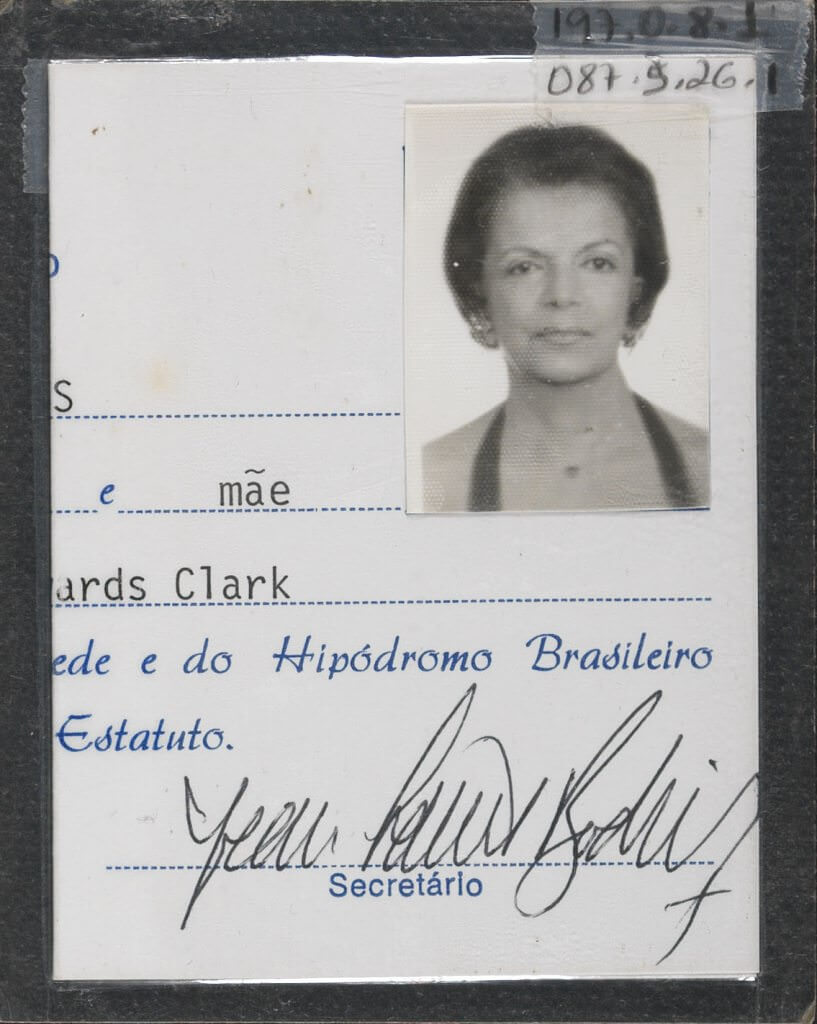 197.0.8.1
087.5.26.1
o
s
e mãe
ards Clark
ede e do Hipódromo Brasileiro
Estatuto.
Secretário